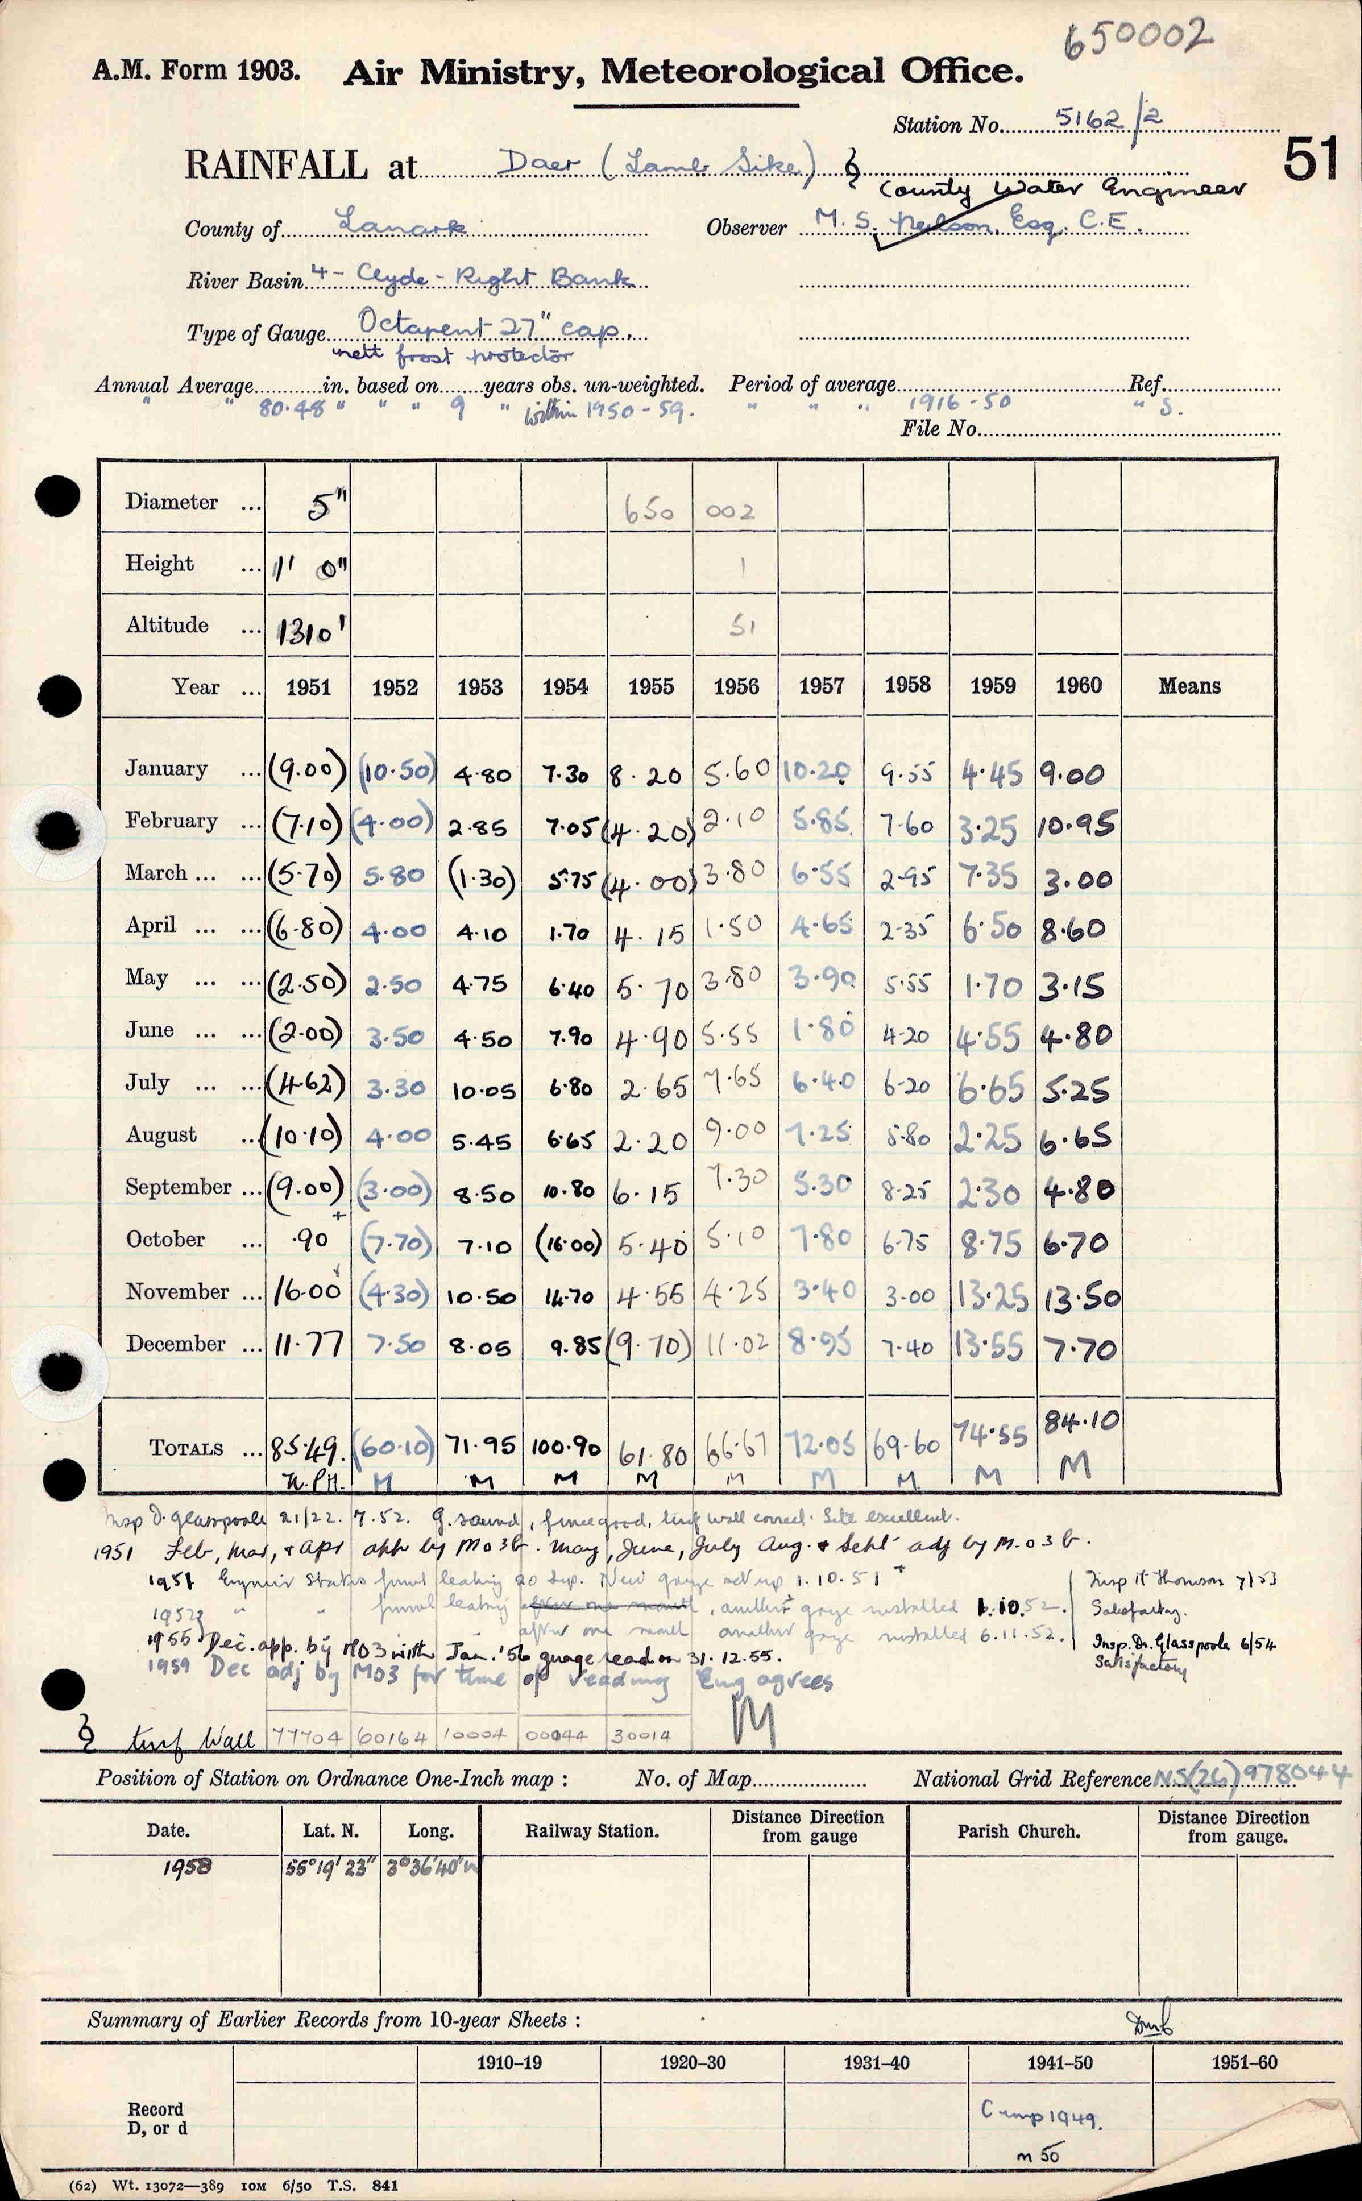 650002
A.M. Form 1903. Air Ministry, Meteorological Office.
Station No. 5162/2
51
RAINFALL at Daer (Lamb Sike) §
County Water Engineer
County of Lanark Observer M. S. Neilson, Esq. C.E.
River Basin 4 - Clyde - Right Bank
Type of Gauge Octapent 27" cap.
nett frost protector
Annual Average in. based on years obs. un-weighted. Period of average Ref.
" " 80.48 " " " 9 " within 1950-59. " " " 1916-50 " S.
File No.
Diameter ... 5" 650 002
Height ... 1' 0" 1
Altitude ... 1310' 51
Year ... 1951 1952 1953 1954 1955 1956 1957 1958 1959 1960 Means
January ... (9.00) (10.50) 4.80 7.30 8.20 5.60 10.20 9.55 4.45 9.00
February ... (7.10) (4.00) 2.85 7.05 (4.20) 2.10 5.85 7.60 3.25 10.95
March ... ... (5.70) 5.80 (1.30) 5.75 (4.00) 3.80 6.55 2.95 7.35 3.00
April ... ... (6.80) 4.00 4.10 1.70 4.15 1.50 4.65 2.35 6.50 8.60
May ... ... (2.50) 2.50 4.75 6.40 5.70 3.80 3.90 5.55 1.70 3.15
June ... ... (2.00) 3.50 4.50 7.90 4.90 5.55 1.80 4.20 4.55 4.80
July ... ... (4.62) 3.30 10.05 6.80 2.65 7.65 6.40 6.20 6.65 5.25
August ... (10.10) 4.00 5.45 6.65 2.20 9.00 7.25 5.80 2.25 6.65
September ... (9.00) (3.00) 8.50 10.80 6.15 7.30 5.30 8.25 2.30 4.80
October ... .90 + (7.70) 7.10 (16.00) 5.40 5.10 7.80 6.75 8.75 6.70
November ... 16.00 (4.30) 10.50 14.70 4.55 4.25 3.40 3.00 13.25 13.50
December ... 11.77 7.50 8.05 9.85 (9.70) 11.02 8.95 7.40 13.55 7.70
TOTALS ... 85.49. (60.10) 71.95 100.90 61.80 66.67 72.05 69.60 74.55 84.10
M M M M M M M M M
Insp D. Glasspoole 21/22. 7.52. G. sound, fence good, turf wall correct. Site excellent.
1951 Feb, Mar, & Apr app by M O 3 b. May, June, July Aug. & Sept adj by M.O 3 b.
1951 Engineer States funnel leaking 20 Sep. New gauge set up 1.10.51 +
Insp R Thomson 7/53
1952 " " funnel leaking after one month, another gauge installed 1.10.52.
Satisfactory.
after one month another gauge installed 6.11.52.
1955 Dec. app. by MO3 with Jan. '56 guage read on 31.12.55.
Insp. Dr. Glasspoole 6/54
Satisfactory
1959 Dec adj by MO3 for time of reading Eng agrees
M
§ turf Wall 77704 60164 10004 00044 30014
Position of Station on Ordnance One-Inch map : No. of Map National Grid Reference NS(26)978044
Date. Lat. N. Long. Railway Station. Distance Direction from gauge Parish Church. Distance Direction from gauge.
1958 55°19'23" 3°36'40"W
Summary of Earlier Records from 10-year Sheets :
1910-19 1920-30 1931-40 1941-50 1951-60
Record
D, or d
Comp 1949.
m 50
(62) Wt. 13072—389 10M 6/50 T.S. 841